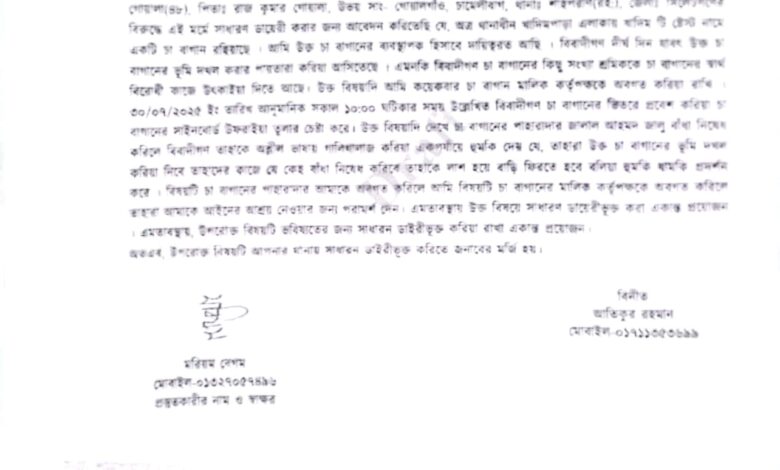 গোয়ালা(৪৮), পিতাঃ রাজ কুমার গোয়ালা, উভয় সাং- গোয়ালগাঁও, চামেলীবাগ, থানাঃ শাহপরাণ(রহ.), জেলাঃ সিলেটগনের
বিরুদ্ধে এই মর্মে সাধারণ ডায়েরী করার জন্য আবেদন করিতেছি যে, অত্র থানাধীন খাদিমপাড়া এলাকায় খাদিম টি ষ্টেস্ট নামে
একটি চা বাগান রহিয়াছে । আমি উক্ত চা বাগানের ব্যবস্থাপক হিসাবে দায়িত্বরত আছি । বিবাদীগণ দীর্ঘ দিন যাবৎ উক্ত চা
বাগানের ভূমি দখল করার পায়তারা করিয়া আসিতেছে । এমনকি বিবাদীগণ চা বাগানের কিছু সংখ্য শ্রমিককে চা বাগানের স্বার্থ
বিরোধী কাজে উৎকাইয়া দিতে আছে। উক্ত বিষয়াদি আমি কয়েকবার চা বাগান মালিক কর্তৃপক্ষকে অবগত করিয়া রাখি ।
৩০/০৭/২০২৫ ইং তারিখ আনুমানিক সকাল ১০:০০ ঘটিকার সময় উল্লেখিত বিবাদীগণ চা বাগানের ভিতরে প্রবেশ করিয়া চা
বাগানের সাইনবোর্ড উফরাইয়া তুলার চেষ্টা করে। উক্ত বিষয়াদি দেখে চা বাগানের পাহারাদার জালাল আহমদ জালু বাঁধা নিষেধ
করিলে বিবাদীগণ তাহাকে অশ্লীল ভাষায় গালিগালাজ করিয়া একপর্যায়ে হুমকি দেয় যে, তাহারা উক্ত চা বাগানের ভূমি দখল
করিয়া নিবে তাহাদের কাজে যে কেহ বাঁধা নিষেধ করিবে তাহাকে লাশ হয়ে বাড়ি ফিরতে হবে বলিয়া হুমকি ধামকি প্রদর্শন
করে । বিষয়টি চা বাগানের পাহারাদার আমাকে অবগত করিলে আমি বিষয়টি চা বাগানের মালিক কর্তৃপক্ষকে অবগত করিলে
তাহারা আমাকে আইনের আশ্রয় নেওয়ার জন্য পরামর্শ দেন। এমতাবস্থায় উক্ত বিষয়ে সাধারণ ডায়েরীভূক্ত করা একান্ত প্রয়োজন
। এমতাবস্থায়, উপরোক্ত বিষয়টি ভবিষ্যতের জন্য সাধারন ডাইরীভূক্ত করিয়া রাখা একান্ত প্রয়োজন।
অতএব, উপরোক্ত বিষয়টি আপনার থানায় সাধারন ডাইরীভূক্ত করিতে জনাবের মর্জি হয়।
বিনীত
আতিকুর রহমান
মোবাইল-০১৭১১৩৫৩৬৯৯
মরিয়ম বেগম
মোবাইল-০১৩২৭০৫৭৪৯৬
প্রস্তুতকারীর নাম ও স্বাক্ষর